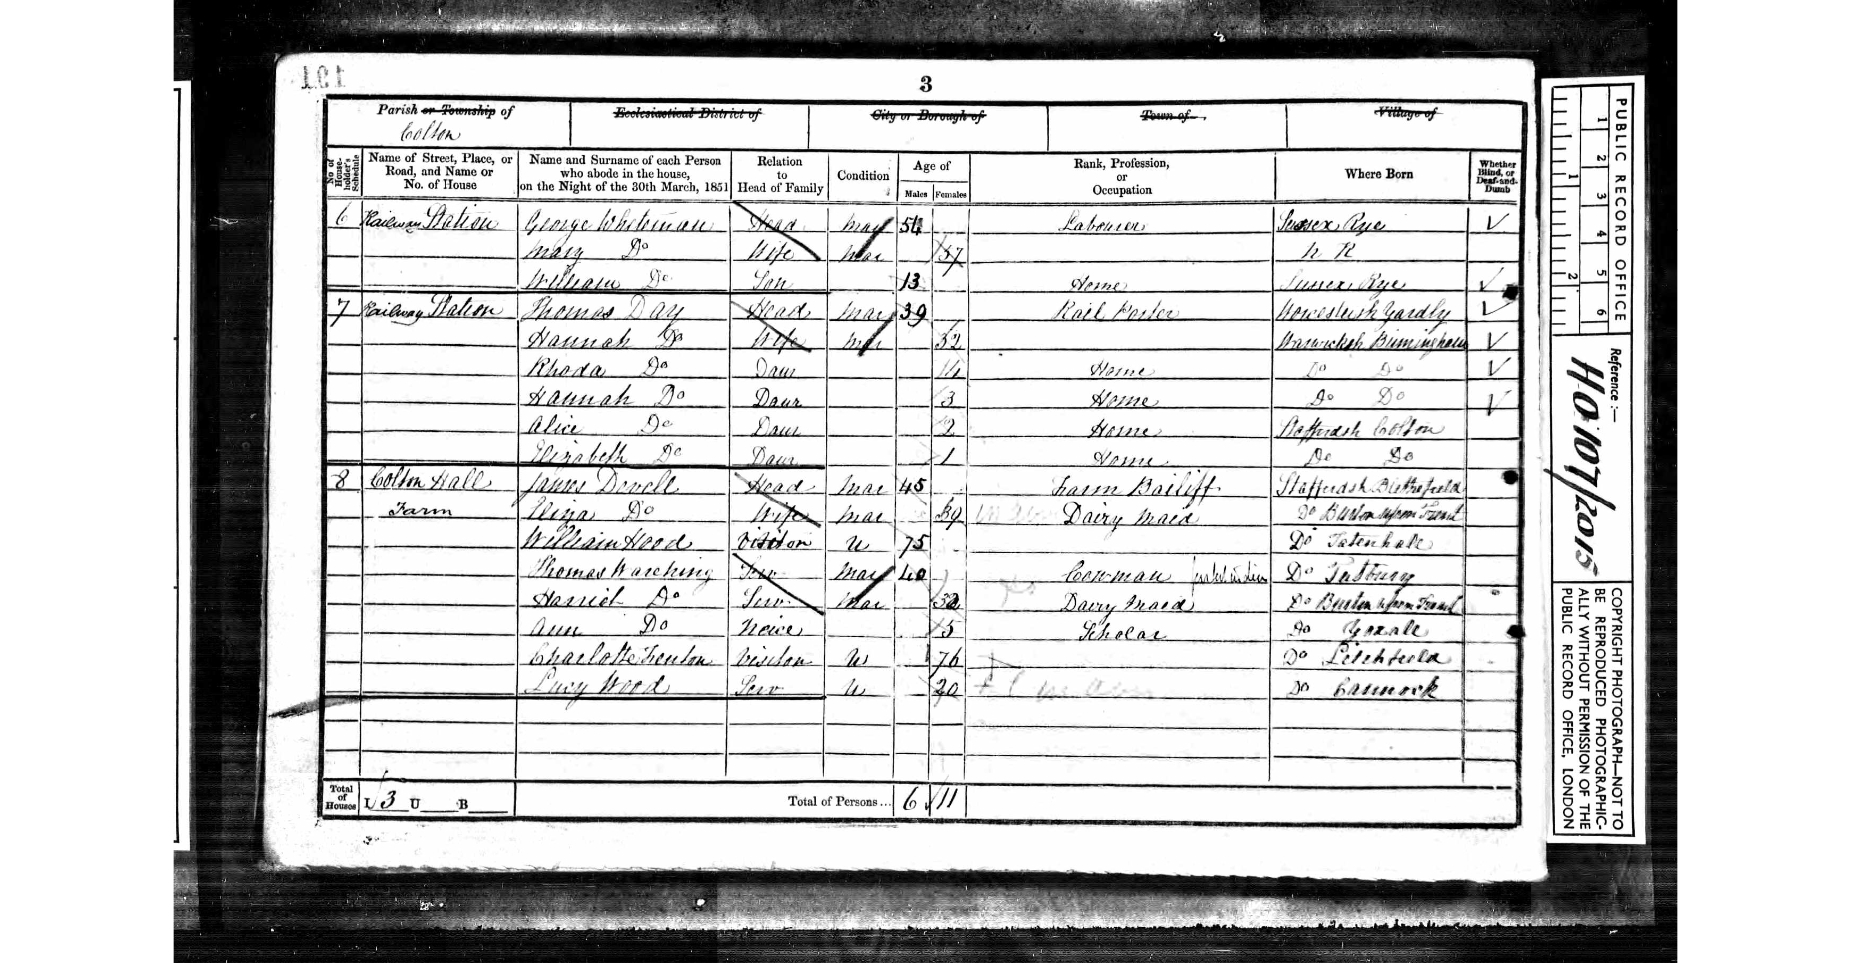 3
Parish or Township of
Colton
Ecclesiastical District of
City or Borough of
Town of
Village of
No of House-holder's Schedule
Name of Street, Place, or Road, and Name or No. of House
Name and Surname of each Person who abode in the house, on the Night of the 30th March, 1851
Relation to Head of Family
Condition
Age of
Males
Females
Rank, Profession, or Occupation
Where Born
Whether Blind, or Deaf-and-Dumb
6 Railway Station George Whiteman Head Mar 54 Labourer Sussex Rye
Mary Do Wife Mar 57 N K
William Do Son 13 Home Sussex Rye
7 Railway Station Thomas Day Head Mar 39 Rail Porter Worcestersh Yardly
Hannah Do Wife Mar 32 Warwicksh Birmingham
Rhoda Do Daur Home Do Do
Hannah Do Daur 3 Home Do Do
Alice Do Daur 2 Home Staffordsh Colton
Elizabeth Do Daur 1 Home Do Do
8 Colton Hall James Dovell Head Mar 45 Farm Bailiff Staffordsh Blithefield
Farm Eliza Do Wife Mar 39 Dairy Maid Do Burton upon Trent
William Hood Visitor U 75 Do Tatenhale
Thomas Warching Serv Mar 40 Cowman Do Tutbury
Harriet Do Serv Mar 32 Dairy Maid Do Burton upon Trent
Ann Do Neice 5 Scholar Do Yoxall
Charlotte Fenton Visitor U 76 Do Litchfield
Lucy Wood Serv U 20 Do Cannock
Total of Houses I 3 U B Total of Persons... 6 11
PUBLIC RECORD OFFICE
1 2 3 4 5 6
1 2
Reference :-
HO 107/2015
COPYRIGHT PHOTOGRAPH—NOT TO
BE REPRODUCED PHOTOGRAPHIC-
ALLY WITHOUT PERMISSION OF THE
PUBLIC RECORD OFFICE, LONDON